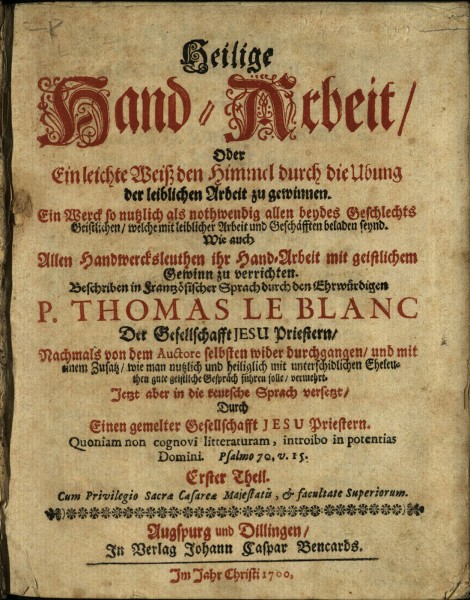 P
Heilige
Hand-Arbeit/
Oder
Ein leichte Weiß den Himmel durch die Ubung
der leiblichen Arbeit zu gewinnen.
Ein Werck so nutzlich als nothwendig allen beydes Geschlechts
Geistlichen/ welche mit leiblicher Arbeit und Geschäfften beladen seynd.
Wie auch
Allen Handwercksleuthen ihr Hand-Arbeit mit geistlichem
Gewinn zu verrichten.
Beschriben in Frantzösischer Sprach durch den Ehrwürdigen
P. THOMAS LE BLANC
Der Gesellschafft JESU Priestern/
Nachmals von dem Auctore selbsten wider durchgangen/ und mit
einem Zusatz/ wie man nutzlich und heiliglich mit unterschidlichen Eheleu-
then gute geistliche Gespräch führen solle/ vermehrt.
Jetzt aber in die teutsche Sprach versetzt/
Durch
Einen gemelter Gesellschafft JESU Priestern.
Quoniam non cognovi litteraturam, introibo in potentias
Domini. Psalmo 70. v. 15.
Erster Theil.
Cum Privilegio Sacræ Cæsareæ Majestatis, & facultate Superiorum.
Augspurg und Dillingen/
In Verlag Johann Caspar Bencards.
Im Jahr Christi 1700.